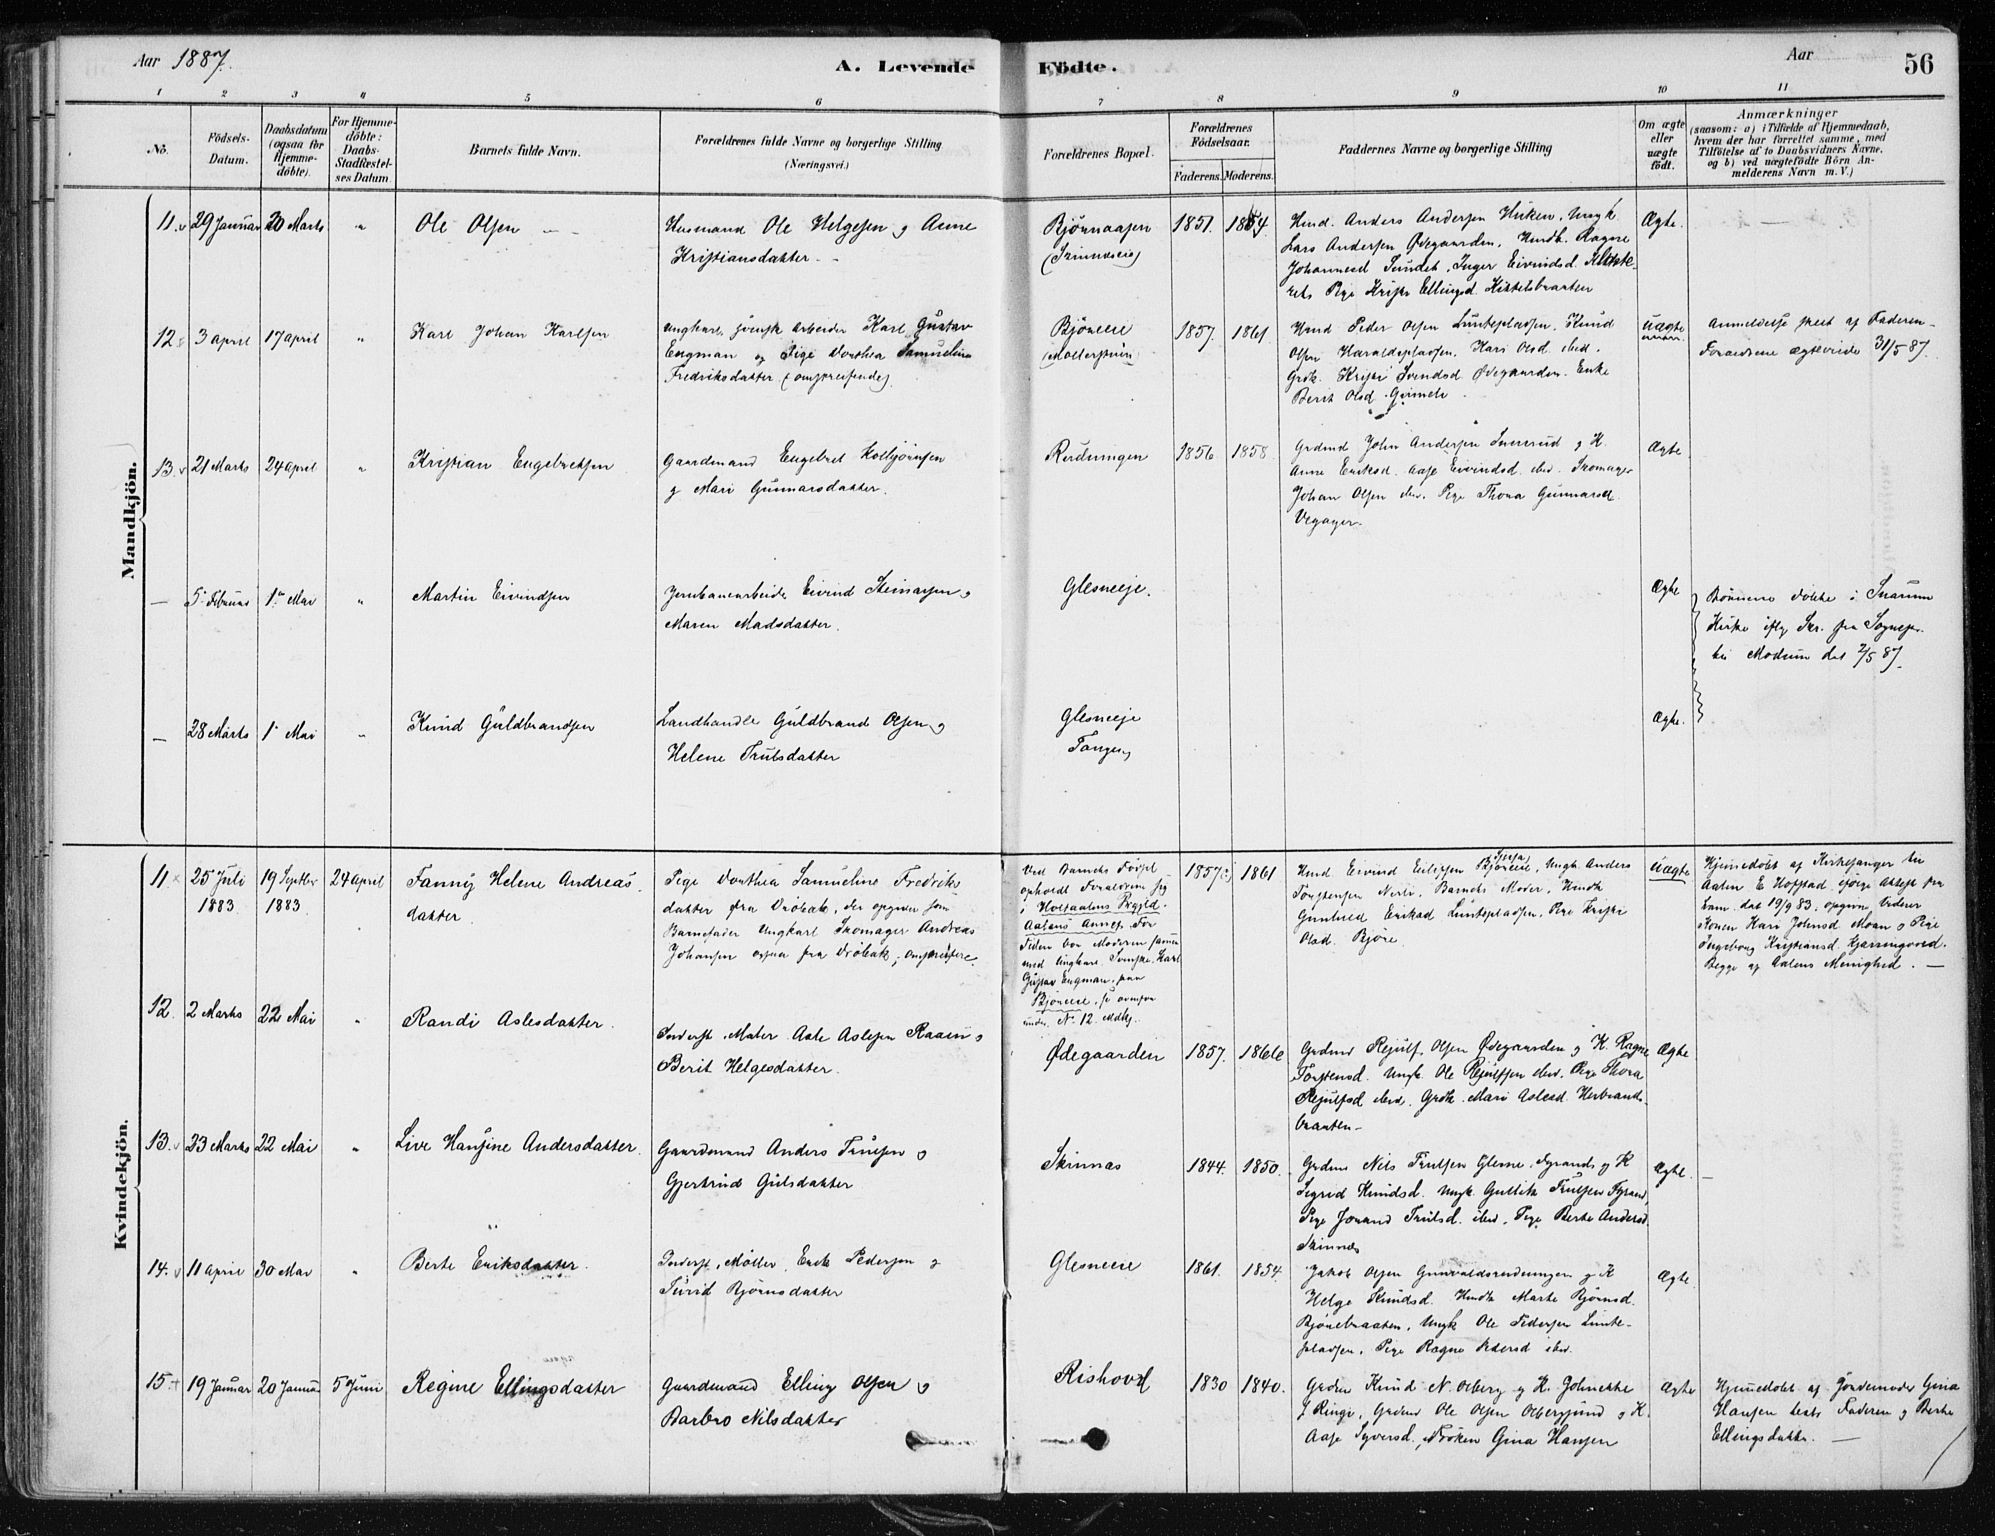 Aar 1887.
A. Levende Födte.
Aar
56
1 2 3 4 5 6 7 8 9 10 11
No.
Födsels-
Datum.
Daabsdatum
(ogsaa för
Hjemme-
döbte).
For Hjemme-
döbte:
Daabs-
Stadfæstel-
ses Datum.
Barnets fulde Navn.
Forældrenes fulde Navne og borgerlige Stilling
(Næringsvei.)
Forældrenes Bopæl.
Forældrenes
Födselsaar.
Faderens. Moderens.
Faddernes Navne og borgerlige Stilling
Om ægte
eller
uægte
födt.
Anmærkninger
(saasom: a) i Tilfælde af Hjemmedaab,
hvem der har forrettet samme, med
Tilföielse af to Daabsvidners Navne,
og b) ved uægtefödte Börn An-
melderens Navn m. V.)
Mandkjön.
11. 29 Januar 20 Marts " Ole Olsen
Husmand Ole Helgesen og Anne
Kristiansdatter.
Bjørnaasen
1851. 1854.
Husmd. Anders Andersen Ungk.
Lars Andersen Ødegaarden, Husmdk. Ragne
Johannesd. Sundet, Inger Eivindsd.
Pige Ellingsd.
Ægte.
12 3 april 17 april " Karl Johan Karlsen
Ungkarl, svensk Arbeider Karl Gustav
Engman og Pige Dorthea Samueline
Fredriksdatter (omstreifende).
Bjøneeie
1857. 1861
Husmd Peder Olsen Lunteplassen, Knud
Olsen Haraldsplassen, Kari Olsd. ibid.
Grdk. Kristi Svendsd. Ødegaarden. Enke
Berit Olsd.
uægte
Anmeldelse skeet af Faderen
Forældrene ægteviede 31/5 87.
13. 21 Marts 24 april " Kristian Engebretsen
Gaardmand Engebret Kolbjørnsen
og Mari Gunnarsdatter.
Rudningen
1856 1858
Grdmd John Andersen og K.
Anne Eriksd. Aase Eivindsd. ibid. Skomager
Johan Olsen ibid. Pige Thona Gunnarsd.
Vegager.
Ægte
— 5 Februar 1 Mai " Martin Eivindsen
Jernbanearbeider Eivind Steinarsen og
Maren Madsdatter.
Glesneeie.
Ægte
Børnene døbte i Snarum
Kirke iflg Skr. fra Sognepr.
til Modum dat 2/5 87.
— 28 Marts 1 Mai " Knud Guldbrandsen
Landhandler Guldbrand Olsen og
Helene Trulsdatter
Glesneeie
Tangen
Ægte.
Kvindekjön.
11. 25 Juli
1883
19 Septbr
1883
24 april
Fanny Helene Andreas-
datter.
Pige Dorthea Samueline Fredriks-
datter fra Drøbak, der opgiver som
Barnefader Ungkarl Skomager Andreas
Johansen ogsaa fra Drøbak; omstreifere.
Ved Barnets Fødsel
opholdt Forældrene sig
i Holtaalens Prgjeld.
Aalens Annex. For
Tiden bor Moderen sammen
med Ungkarl Svenske Karl
Gustav Engman, paa
Bjøneeie, se ovenfor
under No. 12. Mdkj.
1857(?) 1861
Husmd Eivind Eilifsen Bjøneeie, Ungk. Anders
Torstensen Barnets Moder, Husmdk
Gunhild Eriksd Lunteplassen, Pige Kristi
Olsd. Bjøre.
uægte
Hjemmedøbt af Kirkesanger til
Aalen E Hofstad, ifølge Attest fra
ham dat 19/9 83, opgivne Vidner
Konen Kari Johnsd Moan og Pige
Ingeborg Kristiansd.
Begge af Aalens Menighed.
12. 2 Marts 22 Mai " Randi Aslesdatter.
Inderst, Maler Asle Aslesen Raaen og
Berit Helgesdatter.
Ødegaarden
1857. 1866
Grdmd Olsen Ødegaarden og K. Ragne
Torstensd. Ungk. Ole ibid. Pige Thora
ibid. Grdk. Mari Aslesd. Herbrands-
braaten
Ægte
13. 23 Marts 22 Mai " Live Hansine Andersdatter.
Gaardmand Anders Trulsen og
Gjertrud Gulsdatter
Skinnes
1844. 1850.
Grdmd Nils Trulsen Glesne, og K
Sigrid Knudsd. Ungk. Gullik Trulsen
Pige Jorand Trulsd. ibid, Pige Berte Andersd
Skinnes
Ægte.
14. 11 april 30 Mai " Berte Eriksdatter.
Inderst, Møller, Erik Pedersen og
Turid Bjørnsdatter
Glesneeie
1861. 1854.
Jakob Olsen og K
Helge Knudsd. Husmdk Marte Bjørnsd.
Bjørebraaten, Ungk Ole Pedersen Lunte-
plassen, Pige Ragne Pedersd ibid.
Ægte
15. 19 Januar 20 Januar 5 Juni Regine Ellingsdatter
Gaardmand Elling Olsen og
Barbro Nilsdatter
Rishovd
1830 1840.
Grdmd Knud N. Olberg og K.
Ringi, Grdmd Ole Olsen og K.
Aase Syversd., Frøken Gina Hansen
Ægte
Hjemmedøbt af Jordemoder Gina
Hansen, Faderen og Berte
Ellingsdatter.